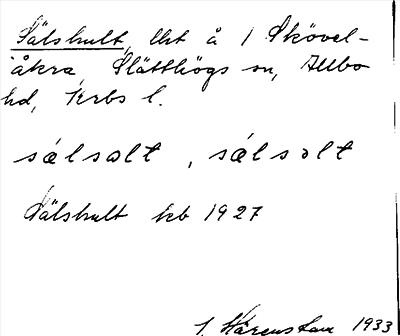 Sälshult, lht å 1 Skövel-
åkra, Slätthögs sn, Allbo
hd, Krbs l.
sælsɷlt, sælsɷlt
Sälshult kb 1927
1933